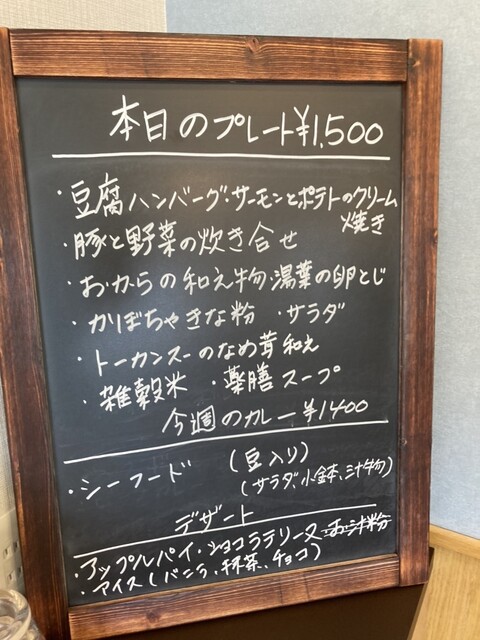 本日のプレート¥1,500
・豆腐ハンバーグ・サーモンとポテトのクリーム
焼き
・豚と野菜の炊き合せ
・おからの和え物・湯葉の卵とじ
・かぼちゃきな粉 ・サラダ
・トーカンスーのなめ茸和え
・雑穀米 ・薬膳スープ
今週のカレー¥1400
・シーフード (豆入り)
(サラダ、小鉢、汁物)
デザート
・アップルパイ・ショコラテリーヌ
・アイス(バニラ、抹茶、チョコ)